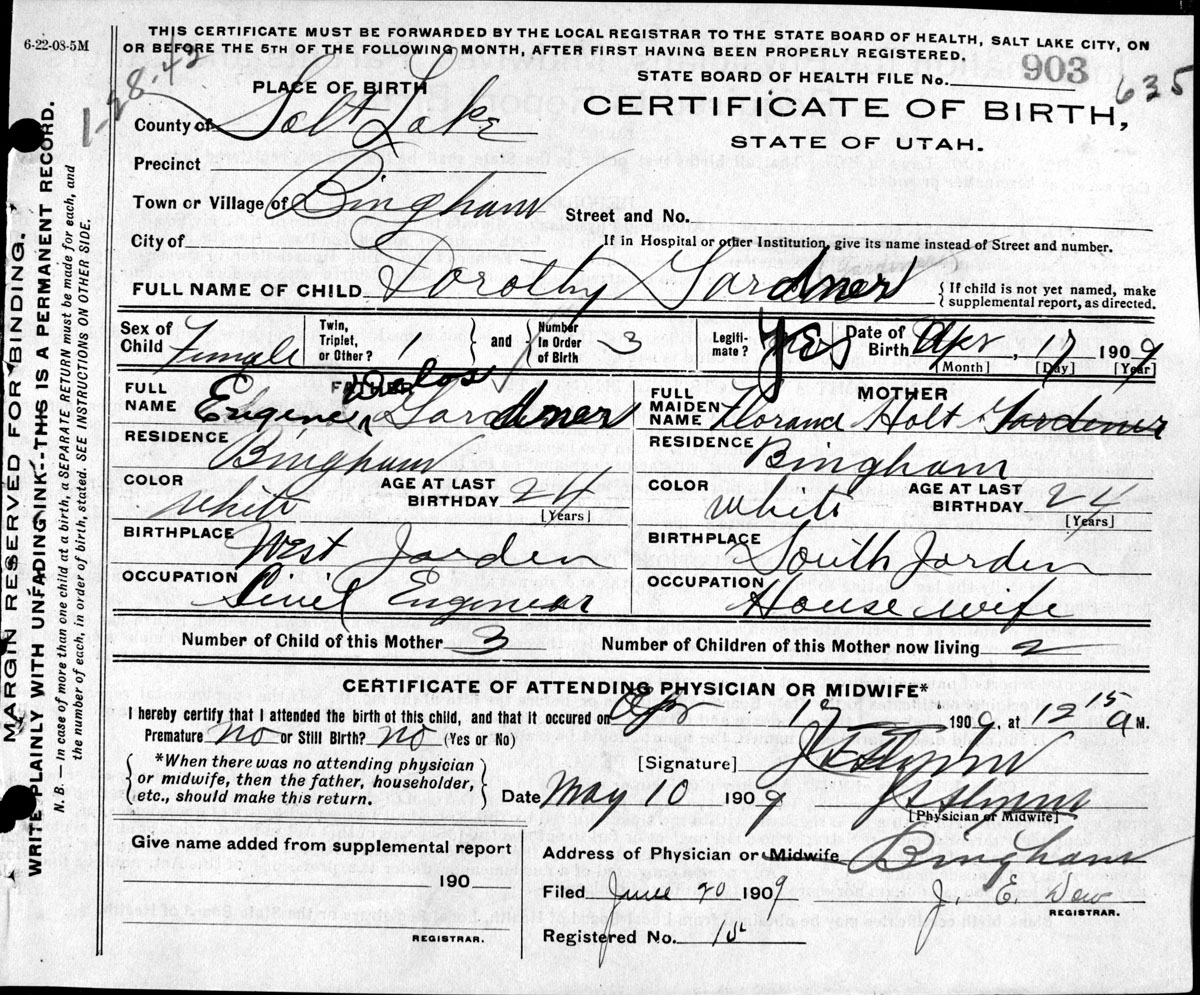 6-22-08-5M
THIS CERTIFICATE MUST BE FORWARDED BY THE LOCAL REGISTRAR TO THE STATE BOARD OF HEALTH, SALT LAKE CITY, ON
OR BEFORE THE 5TH OF THE FOLLOWING MONTH, AFTER FIRST HAVING BEEN PROPERLY REGISTERED.
STATE BOARD OF HEALTH FILE No. 903 635
1-28-42
PLACE OF BIRTH
CERTIFICATE OF BIRTH,
STATE OF UTAH.
County of Salt Lake
Precinct
Town or Village of Bingham
Street and No.
City of
If in Hospital or other Institution, give its name instead of Street and number.
FULL NAME OF CHILD Dorothy Gardner
(Gardiner)
{ If child is not yet named, make
supplemental report, as directed.
Sex of Child Female
Twin, Triplet, or Other? 1 and Number In Order of Birth 3
Legitimate? Yes
Date of Birth Apr, 17 1909
[Month] [Day] [Year]
FATHER
FULL NAME Eugine Delos Gardner
RESIDENCE Bingham
COLOR White AGE AT LAST BIRTHDAY 24
[Years]
BIRTHPLACE West Jorden
OCCUPATION Civil Enginear
MOTHER
FULL MAIDEN NAME Florance Holt Gardener
RESIDENCE Bingham
COLOR White AGE AT LAST BIRTHDAY 24
[Years]
BIRTHPLACE South Jorden
OCCUPATION House wife
Number of Child of this Mother 3 Number of Children of this Mother now living 2
CERTIFICATE OF ATTENDING PHYSICIAN OR MIDWIFE*
I hereby certify that I attended the birth of this child, and that it occured on Apr 17 1909, at 12 15 a M.
Premature no or Still Birth? no (Yes or No)
*When there was no attending physician
or midwife, then the father, householder,
etc., should make this return.
[Signature]
Date May 10 1909
[Physician or Midwife]
Give name added from supplemental report
190
REGISTRAR.
Address of Physician or Midwife Bingham
Filed June 20 1909 J. E. Dew
REGISTRAR.
Registered No.
MARGIN RESERVED FOR BINDING.
WRITE PLAINLY WITH UNFADING INK--THIS IS A PERMANENT RECORD.
N. B. — In case of more than one child at a birth, a SEPARATE RETURN must be made for each, and
the number of each, in order of birth, stated. SEE INSTRUCTIONS ON OTHER SIDE.